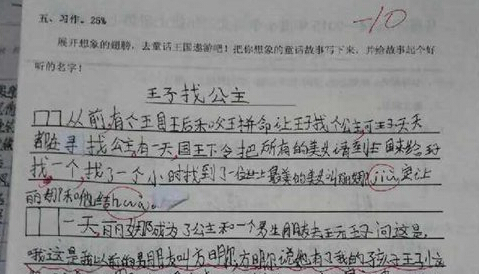 五、习作。25%
-10
展开想象的翅膀,去童话王国遨游吧!把你想象的童话故事写下来,并给故事起个好
听的名字!
王子找公主
从前,有个王国王后和父王拼命让王子找个公主可王子天天
都在寻找公主有一天国王下令把所有的美女请到
找一个,找了一个小时找到了一位世上最美的美女叫丽娜jiu
丽娜和他结hun。
一天丽娜成为了公主和一个男生朋友去玩王子问这是,
我这是我以前的男朋友叫方明,方明说他有了我的孩子王子